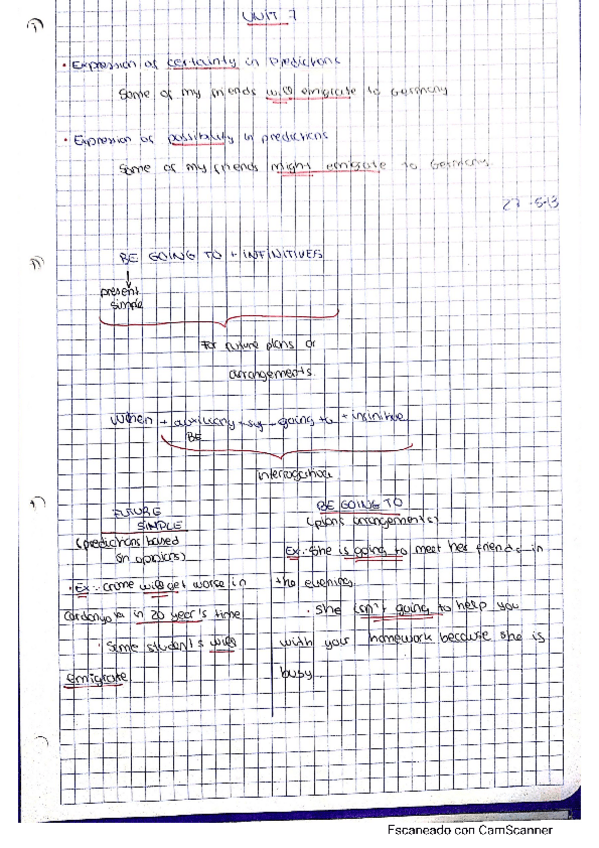 UNIT 7
• Expression of certainty in predictions
Some of my friends will emigrate to Germany
• Expression of possibility in predictions
Some of my friends might emigrate to Germany.
27-5-13
BE GOING TO + INFINITIVES
present
simple
For future plans or
arrangements
When + auxiliary + sy + going to + infinitive
BE
interrogative
FUTURE
SIMPLE
(predictions based
on opinions)
• Ex: crime will get worse in
in 20 year's time
• Some student's will
emigrate
BE GOING TO
(plans arrangements)
Ex: She is going to meet her friends in
the evening.
• She isn't going to help you
with your homework because she is
busy.
Escaneado con CamScanner